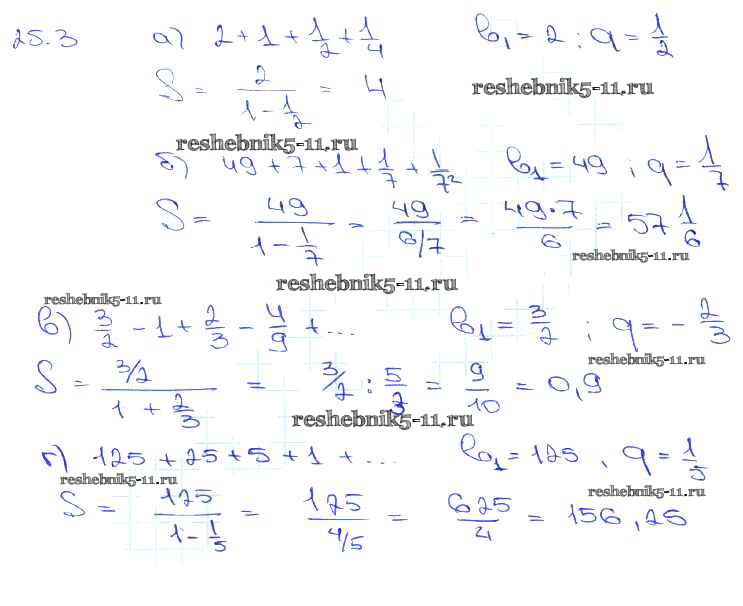 25.3 а) 2 + 1 + 1/2 + 1/4 b₁ = 2 ; q = 1/2
S = 2/(1 - 1/2) = 4
reshebnik5-11.ru
reshebnik5-11.ru
б) 49 + 7 + 1 + 1/7 + 1/7² b₁ = 49 ; q = 1/7
S = 49/(1 - 1/7) = 49/(6/7) = 49·7/6 = 57 1/6
reshebnik5-11.ru
reshebnik5-11.ru
reshebnik5-11.ru
в) 3/2 - 1 + 2/3 - 4/9 + ... b₁ = 3/2 ; q = - 2/3
reshebnik5-11.ru
S = (3/2)/(1 + 2/3) = 3/2 : 5/3 = 9/10 = 0,9
reshebnik5-11.ru
г) 125 + 25 + 5 + 1 + ... b₁ = 125 , q = 1/5
reshebnik5-11.ru
reshebnik5-11.ru
S = 125/(1 - 1/5) = 125/(4/5) = 625/4 = 156,25